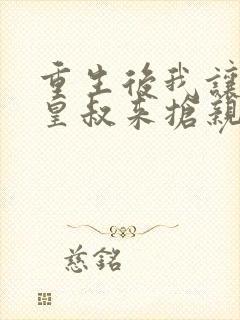 重生後我讓
皇叔来搶親
慈銘